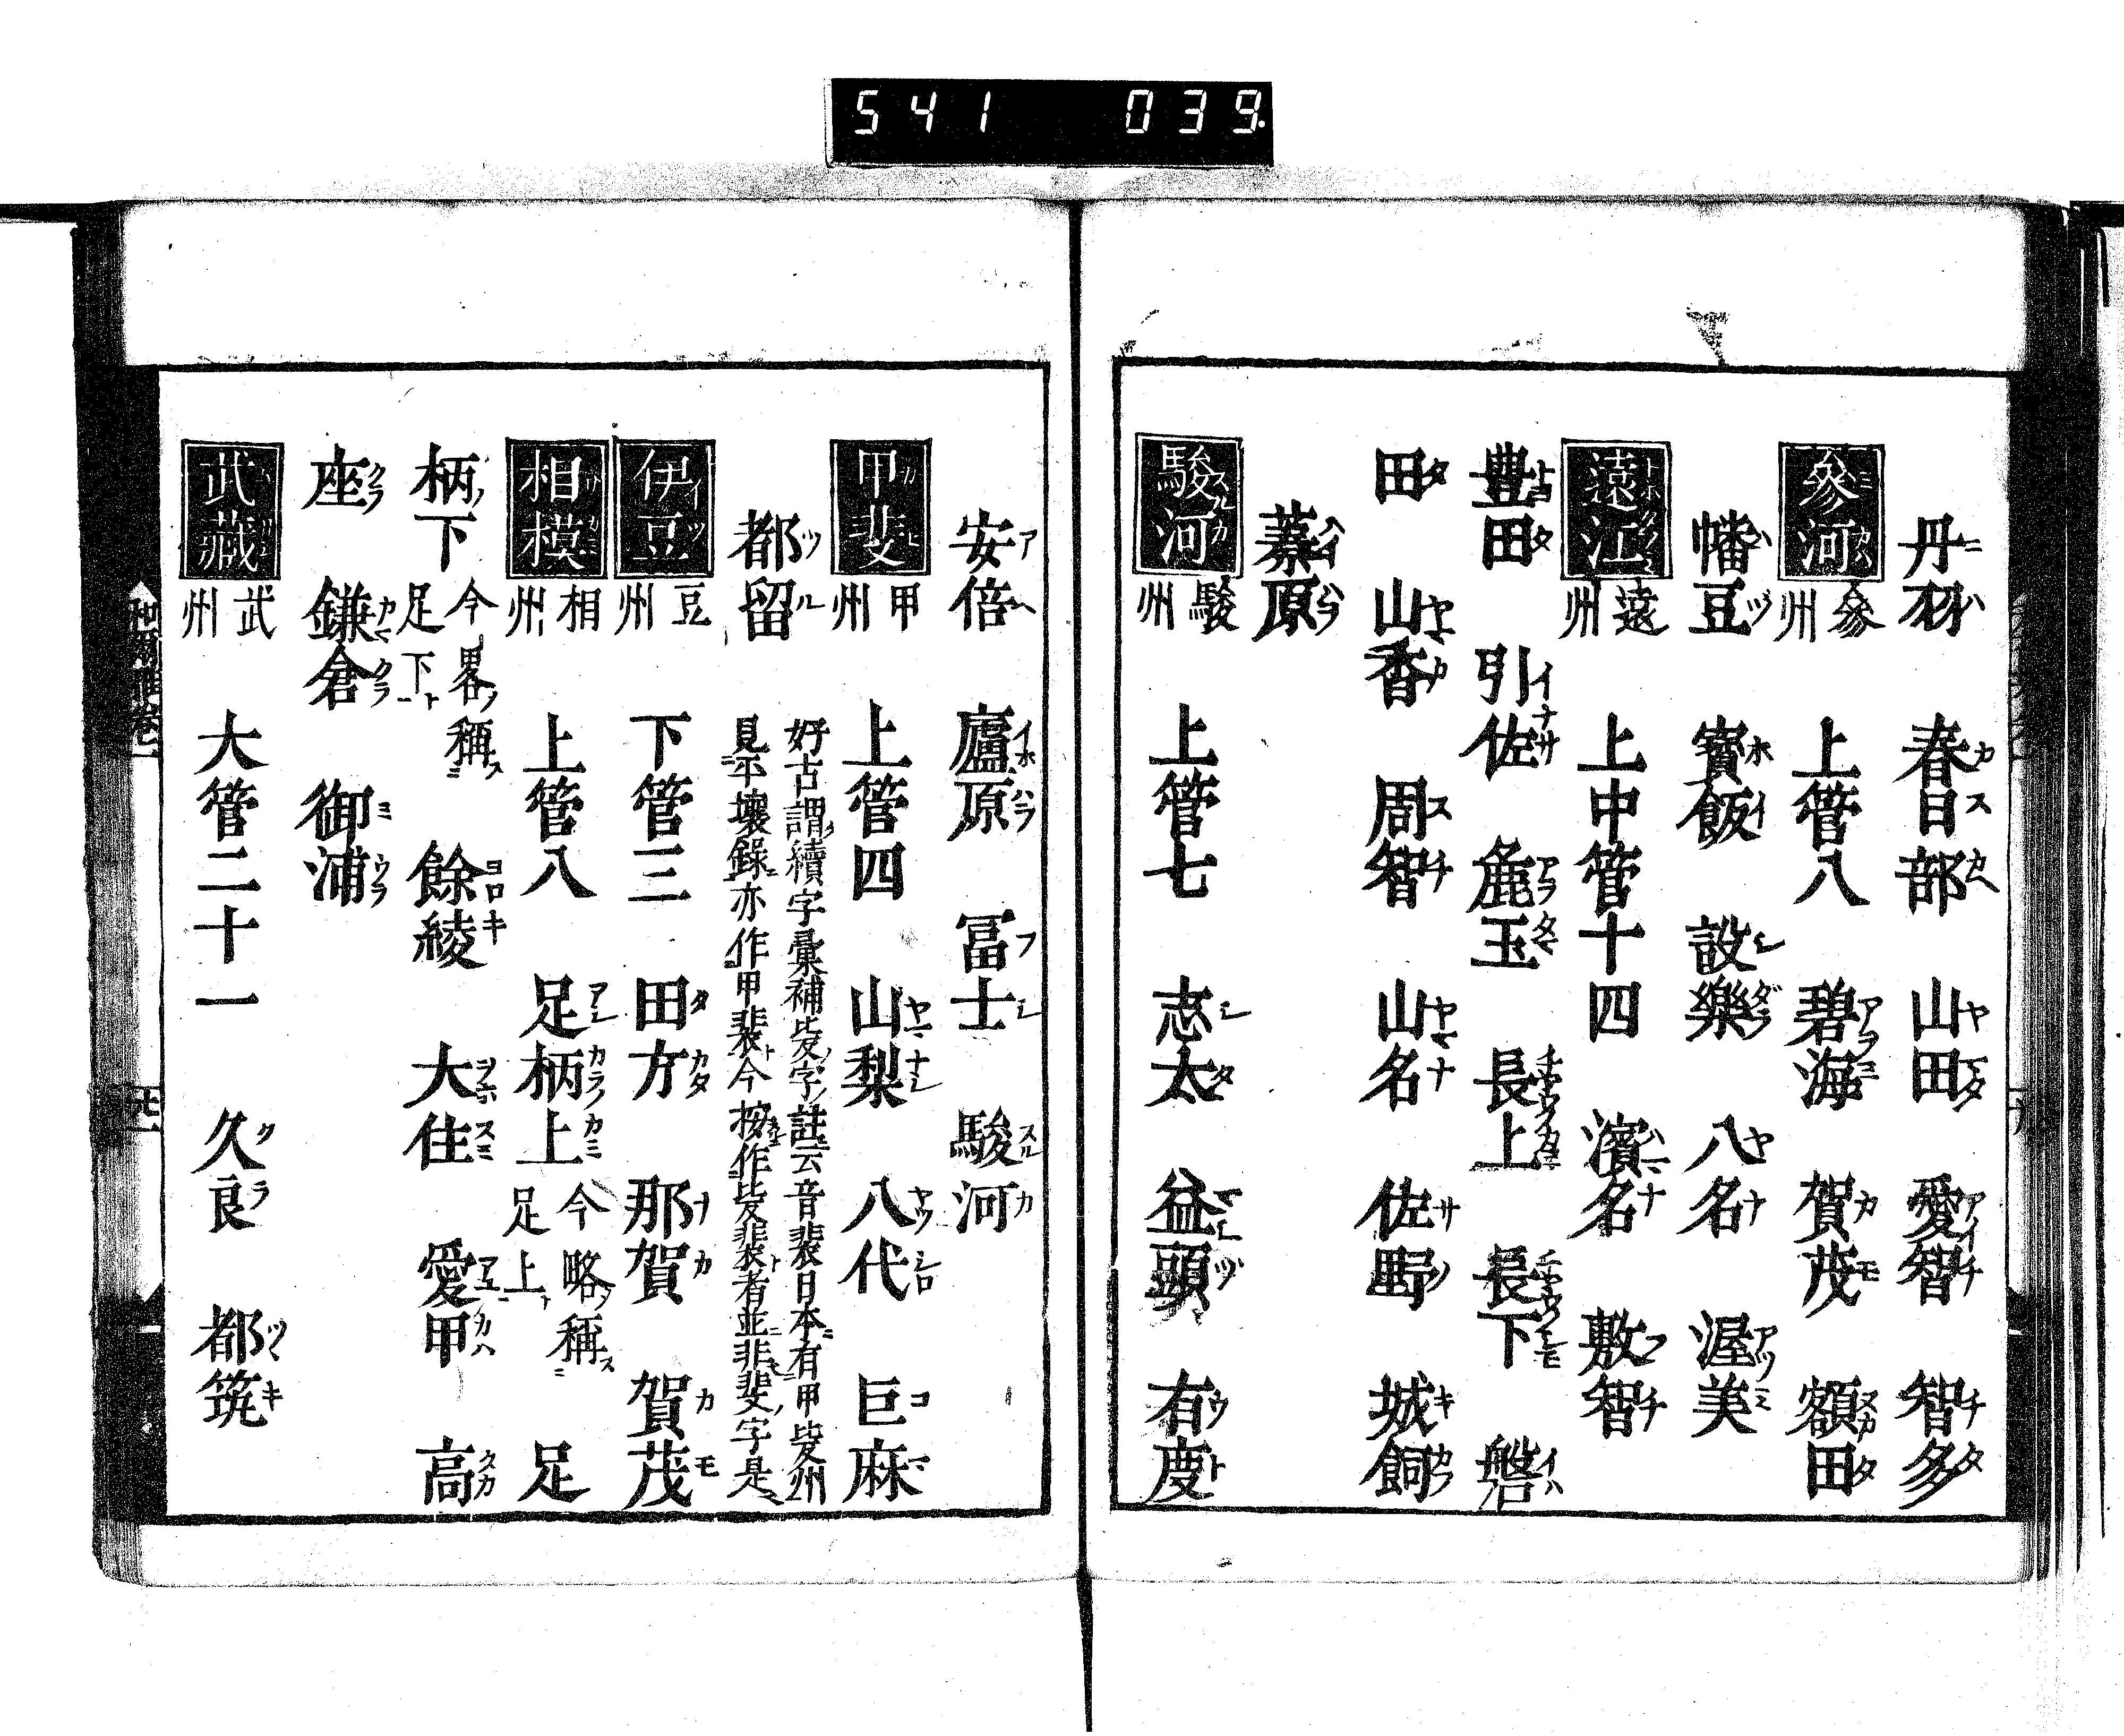 541 039.
丹羽 春日部 山田 愛智 智多
參河 參州 上管八 碧海 賀茂 額田
幡豆 寳飯 設樂 八名 渥美
遠江 遠州 上中管十四 濱名 敷智
豊田 引佐 麁玉 長上 長下 磐
田 山香 周智 山名 佐野 城飼
蓁原
駿河 駿州 上管七 志太 益頭 有度
安倍 廬原 冨士 駿河
甲斐 甲州 上管四 山梨 八代 巨麻
都留 好古謂續字彙補㛄字註云音裴日本有甲㛄州
見平壤錄亦作甲裴今按作㛄裴者並非斐字是
伊豆 豆州 下管三 田方 那賀 賀茂
相模 相州 上管八 足柄上 今略稱足上 足
柄下 今畧稱足下 餘綾 大住 愛甲 高
座 鎌倉 御浦
武藏 武州 大管二十一 久良 都筑
和爾雅卷一